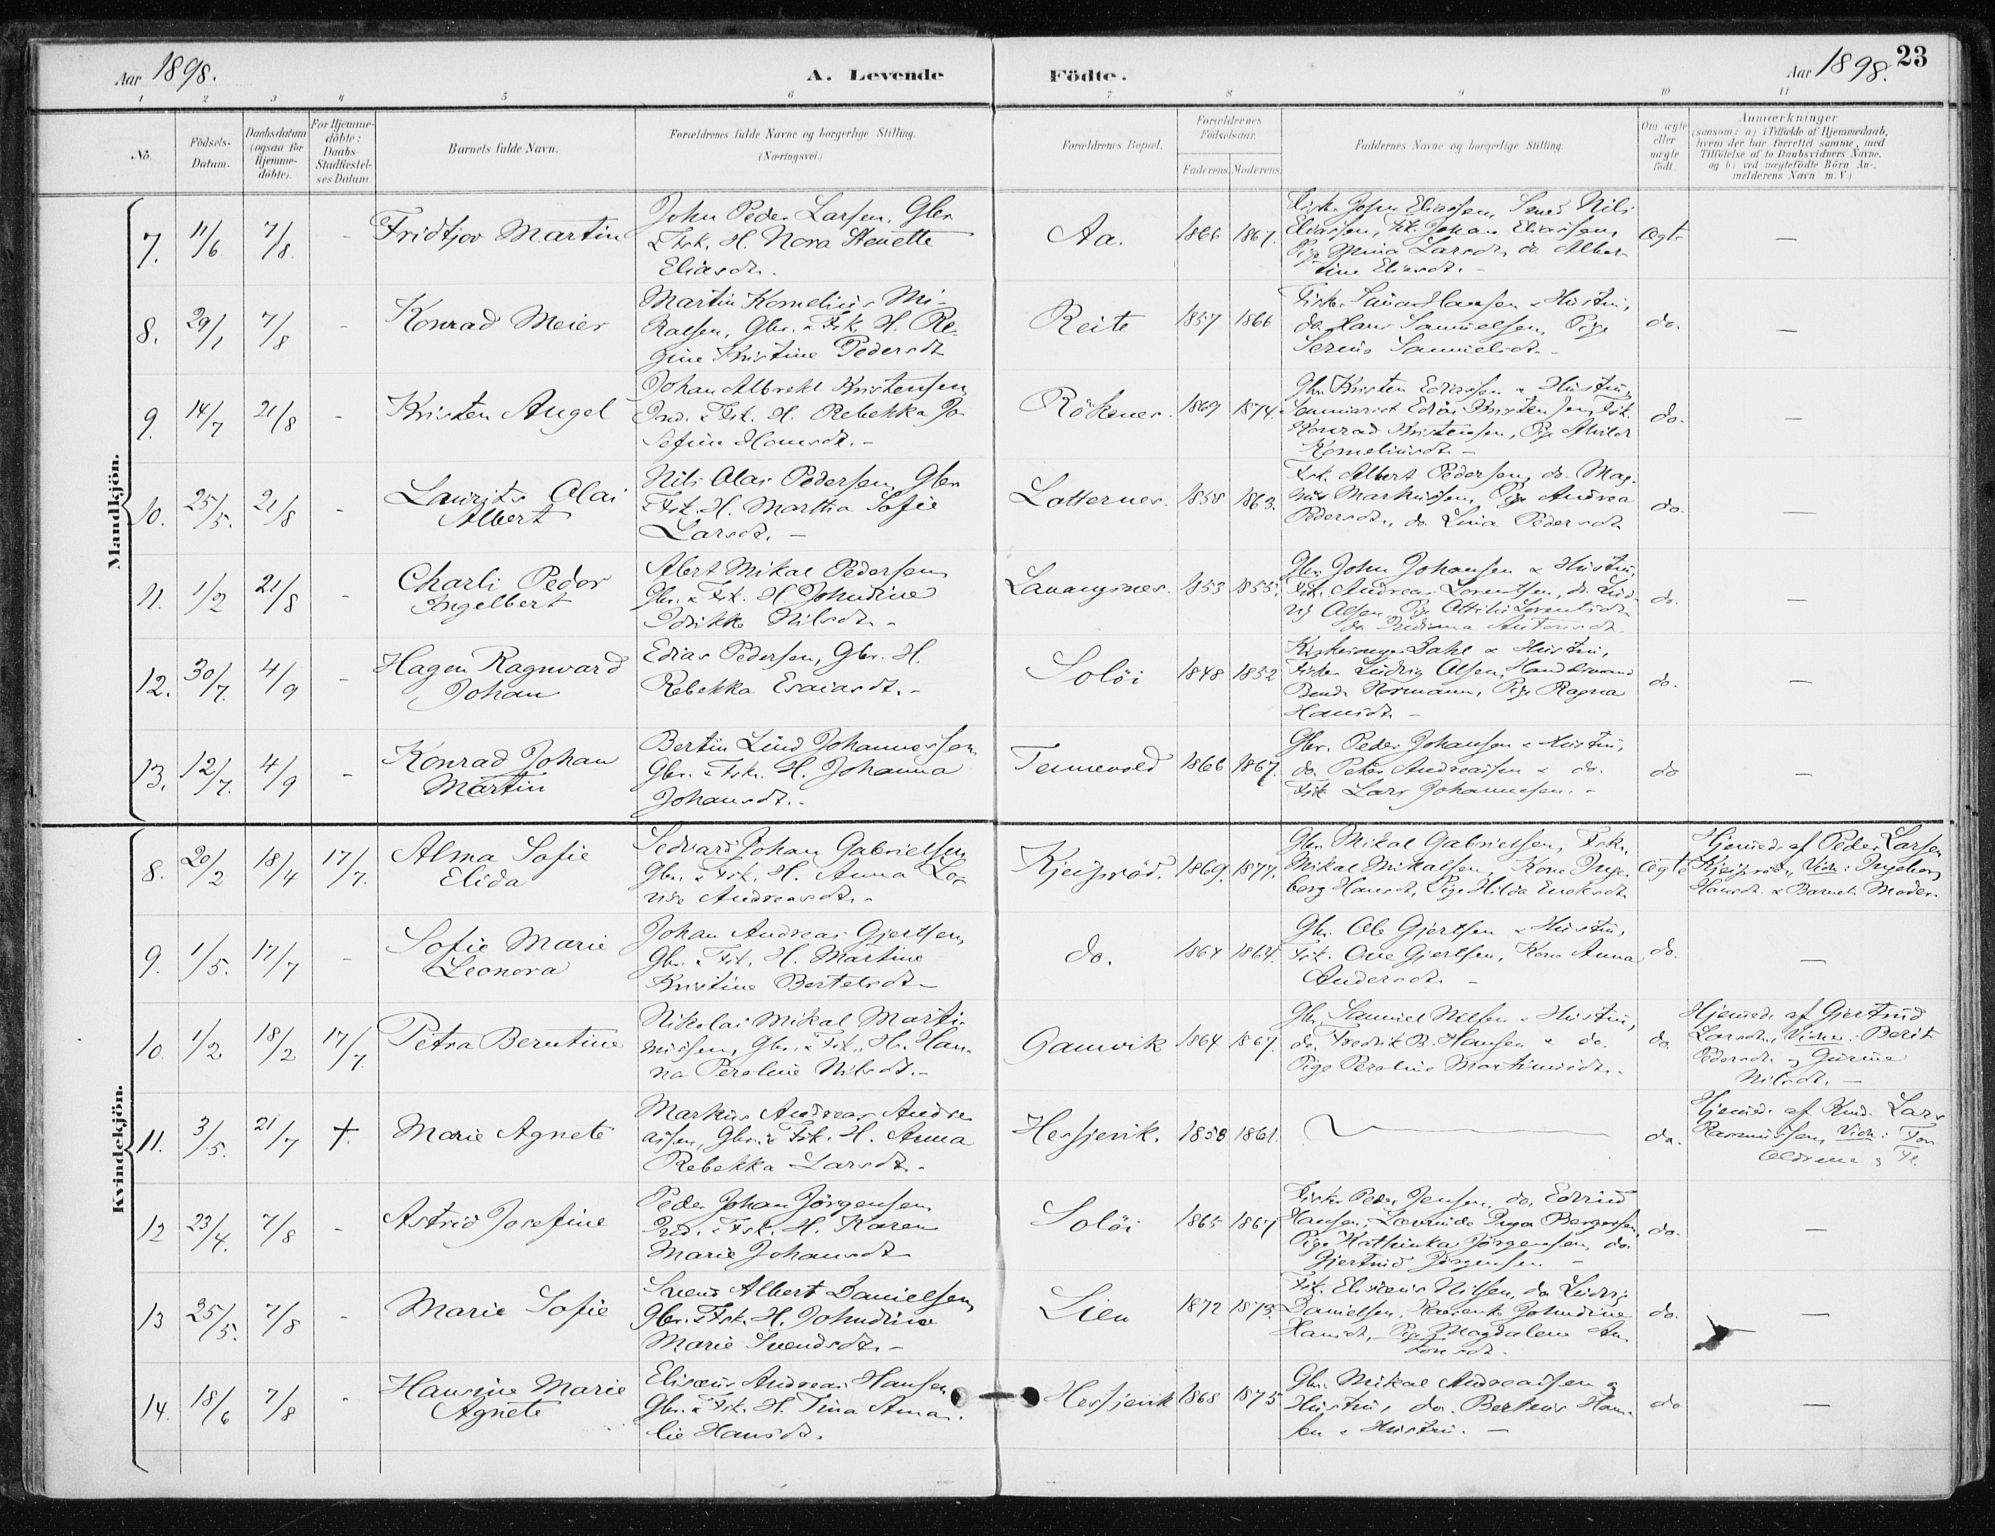 Aar 1898.
A. Levende
Födte.
Aar 1898.
23
1 2 3 4 5 6 7 8 9 10 11
No.
Födsels-
Datum.
Daabsdatum
(ogsaa for
Hjemme-
döbte).
For Hjemme-
döbte:
Daabs-
Stadfæstel-
ses Datum
Barnets fulde Navn.
Forældrenes fulde Navne og borgerlige Stilling.
(Næringsvei.)
Forældrenes Bopæl.
Forældrenes
Födselsaar.
Faderens. Moderens.
Faddernes Navne og borgerlige Stilling.
Om ægte
eller
uægte
födt.
Anmærkninger
(saasom: a) i Tilfælde af Hjemmedaab,
hvem der har forrettet samme, med
Tilföielse af to Daabsvidners Navne,
og b) ved uægtefödte Börn An-
melderens Navn m. V.)
Mandkjön.
7. 11/6. 7/8. - Fridtjov Martin
John Peder Larsen, Gbr.
& Fsk. H. Nora Henette
Eliasdt.
Aa. 1866 1867.
Fisker John Eliassen, Smed Nils
Eliassen, Fsk. Johan Eliassen,
Pige Larsdt., do Alber-
tine Eliasdt. -
Ægte —
8. 29/1 7/8 - Konrad Meier
Martin Kornelius Mi-
kalsen, Gbr. & Fsk. H. Re-
gine Kristine Pedersdt
Reite 1857 1866
Fisker Hansen & Hustru,
do. Hans Samuelsen, Pige
Samuelsdt. -
do. —
9. 14/7 21/8 - Kristen Angel
Johan Albrekt Kristensen,
Ind. & Fsk. H. Rebekka Jo-
sefine Hansdt. -
Röksnes. 1869 1874.
Gbr. Kristen Ediassen & Hustru,
Seminarist Edias Kristensen, Fsk.
Konrad Kristensen, Pige
Korneliusdt. -
do. —
10. 25/5. 21/8 - Laurits Olai
Albert
Nils Olai Pedersen, Gbr
Fsk. H. Martha Sofie
Larsdt. -
Lotternes. 1858 1863.
Fsk. Albert Pedersen, do. Mag-
nus Markussen, Pige Andrea
Pedersdt., do. Lina Pedersdt
do. —
11. 1/2 21/8 - Charli Peder
Ingelbert
Albert Mikal Pedersen,
Gbr. & Fsk. H. Johndine
Nilsdt. -
Lavangsnes. 1853 1855.
Gbr. John Johansen & Hustru,
Fsk. Andreas Lorentsen, do. Lud-
vig Olsen, Pige Lorentsdt.
do Indiana Antonsdt.
do. —
12. 30/7. 4/9 - Hagen Ragnvard
Johan
Edias Pedersen, Gbr. H.
Rebekka Esaiasdt. -
Soløi 1848 1852
Kirkesanger Dahl & Hustru,
Fisker Ludvig Olsen, Handelsmand
Normann, Pige Ragna
Hansdt. -
do. —
13. 12/7. 4/9 - Konrad Johan
Martin
Bertin Lind Johannessen
Gbr. & Fsk. H. Johanna
Johansdt. -
Tennevold 1866 1867.
Gbr. Peder Johansen & Hustru,
do. Peter Andreassen & do.
Fsk Lars Johannesen. -
do —
Kvindekjön.
8. 20/2 18/4 17/7. Alma Sofie
Elida
Sedvard Johan Gabrielsen
Gbr. & Fsk. H. Anna Lo-
vise Andreasdt. -
1869. 1877.
Gbr. Mikal Gabrielsen, Fsk.
Mikal Mikalsen, Kone Inge-
borg Hansdt, Pige Hilda
Ægte
Hjemmed. af Peder Larsen
Vidn.: Ingeborg
Hansdt. & Barnets Moder.
9. 1/5. 17/7 - Sofie Marie
Leonora
Johan Andreas Gjertsen,
Gbr. & Fsk. H. Martine
Kristine Bertelsdt. -
do. 1864 1864.
Gbr. Ole Gjertsen & Hustru,
Fsk. Ove Gjertsen, Kone Anna
Andersdt. -
do. —
10. 1/2 18/2 17/7. Petra Berntine
Nikolai Mikal Marti-
nussen, Gbr. & Fsk. H. Han-
na Peroline Nilsdt. -
Gamvik 1864 1867.
Gbr. Samuel Nilsen & Hustru,
do. Fredrik B. Hansen & do.
Pige Peroline Martinusdt. -
do.
Hjemmed. af Gjertrud
Larsdt., Vidn: Berit
Pedersdt. og Gurine
Nilsdt. -
11. 3/5. 21/7 +. Marie Agnete
Markus Andreas Andre-
assen, Gbr. & Fsk. H. Anna
Rebekka Larsdt. -
Hessjevik. 1858 1861.
do.
Hjemmed. af Lars
Rasmussen, Vidn:
12 23/4. 7/8 - Astrid Josefine
Peder Johan Jörgensen,
Ind. & Fsk. H. Karen
Marie Johansdt
Soløi 1865 1867
Fisker Peder Jensen, do. Edvind
Hansen, Inga Bergersen,
Pige Kathinka Jörgensen, do.
Gjertrud Jörgensen -
do. —
13 25/5. 7/8 - Marie Sofie
Svend Albert Danielsen,
Gbr. & Fsk. H. Johndine
Marie Svendsdt. -
Lien 1872 1873.
Fsk. Elisæus Nilsen, do Ludvig
Danielsen, Johndine
Hansdt, Pige Magdalene An-
tonsdt.
do. —
14. 18/6 7/8 - Hansine Marie
Agnete
Elisæus Andreas Hansen
Gbr. & Fsk. H. Tina Ama-
lie Hansdt.
Hessjevik 1868 1875
Gbr. Mikal Andreassen &
Hustru, do. Berteus Han-
sen & Hustru. -
do —